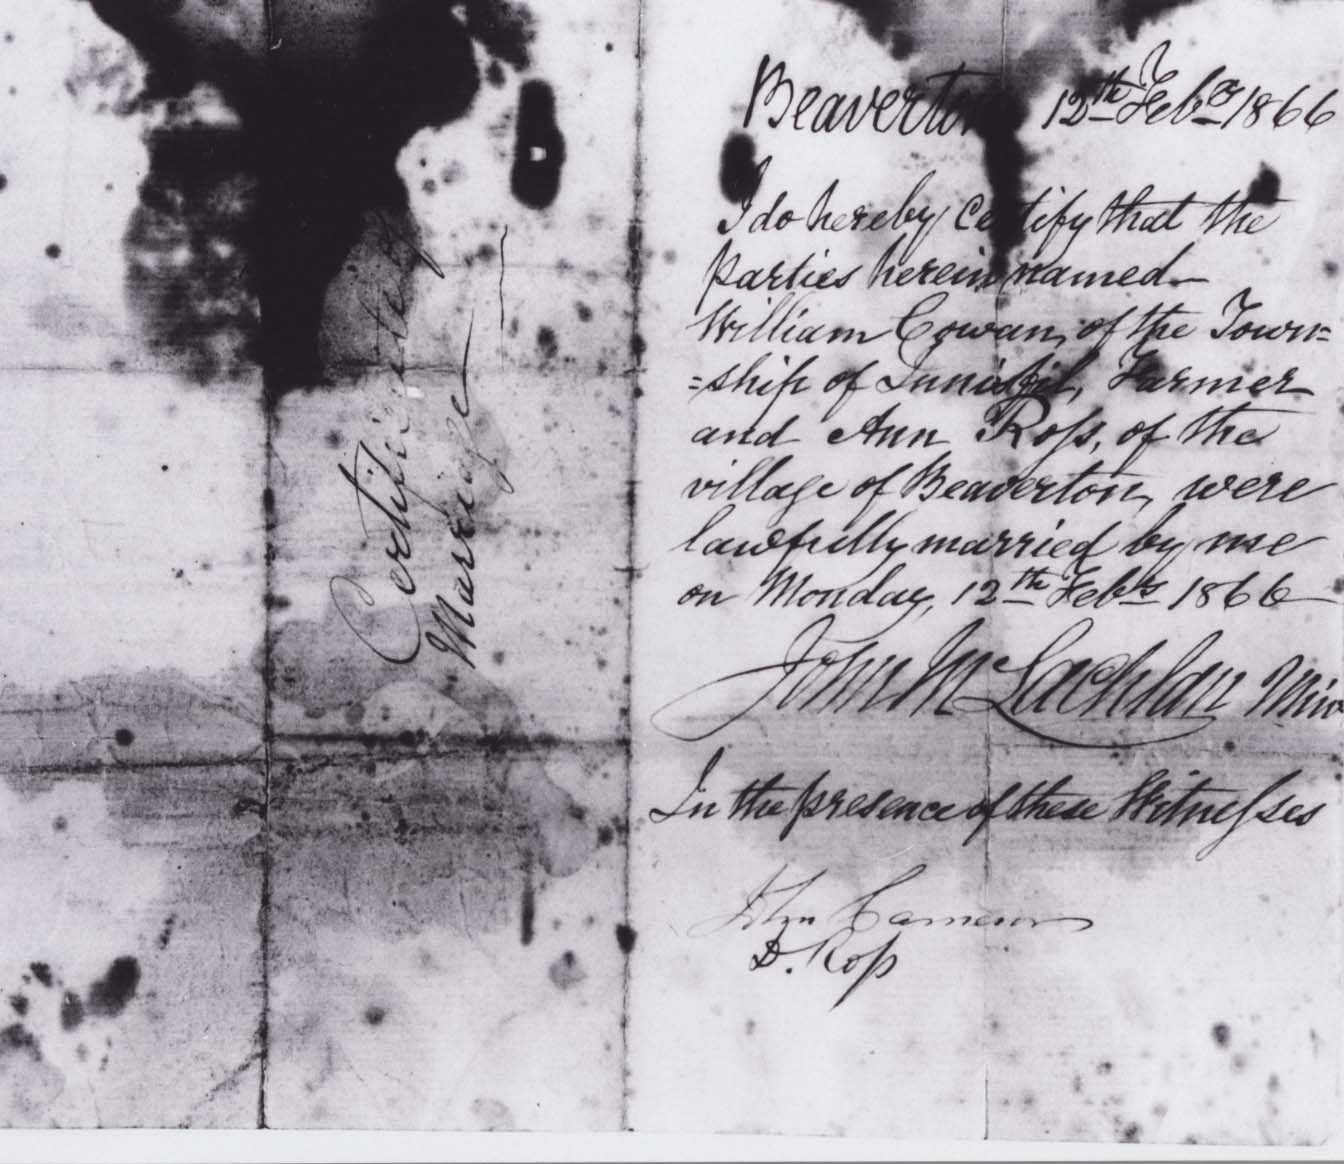 Certificate of
Marriage
Beaverton 12th Feby 1866
I do hereby certify that the
parties herein named
William Cowan, of the Town=
=ship of Innisfil, Farmer
and Ann Ross, of the
village of Beaverton, were
lawfully married by me
on Monday, 12th Feby 1866
John McLachlan Minr
In the presence of these Witnesses
John Cameron
D. Ross